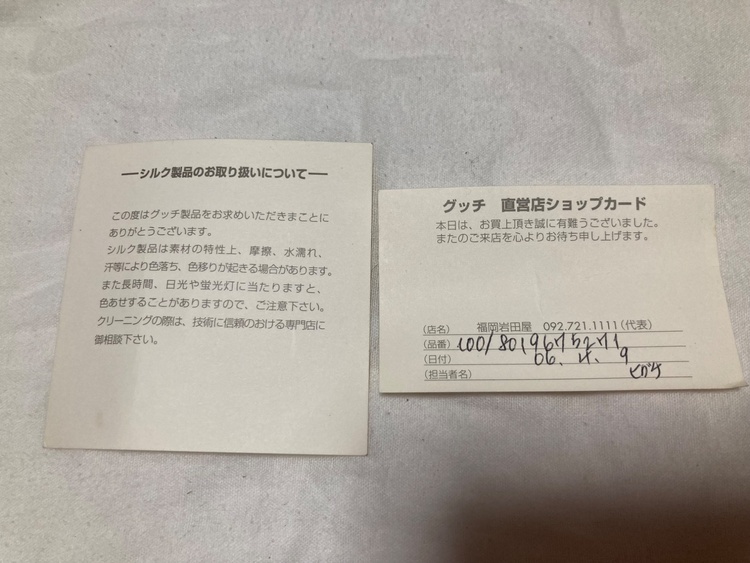 ―シルク製品のお取り扱いについて―
この度はグッチ製品をお求めいただきまことに
ありがとうございます。
シルク製品は素材の特性上、摩擦、水濡れ、
汗等により色落ち、色移りが起きる場合があります。
また長時間、日光や蛍光灯に当たりますと、
色あせすることがありますので、ご注意下さい。
クリーニングの際は、技術に信頼のおける専門店に
御相談下さい。
グッチ 直営店ショップカード
本日は、お買上頂き誠に有難うございました。
またのご来店を心よりお待ち申し上げます。
(店名) 福岡岩田屋 092.721.1111(代表)
(品番)
(日付) 06. 4. 9
(担当者名)